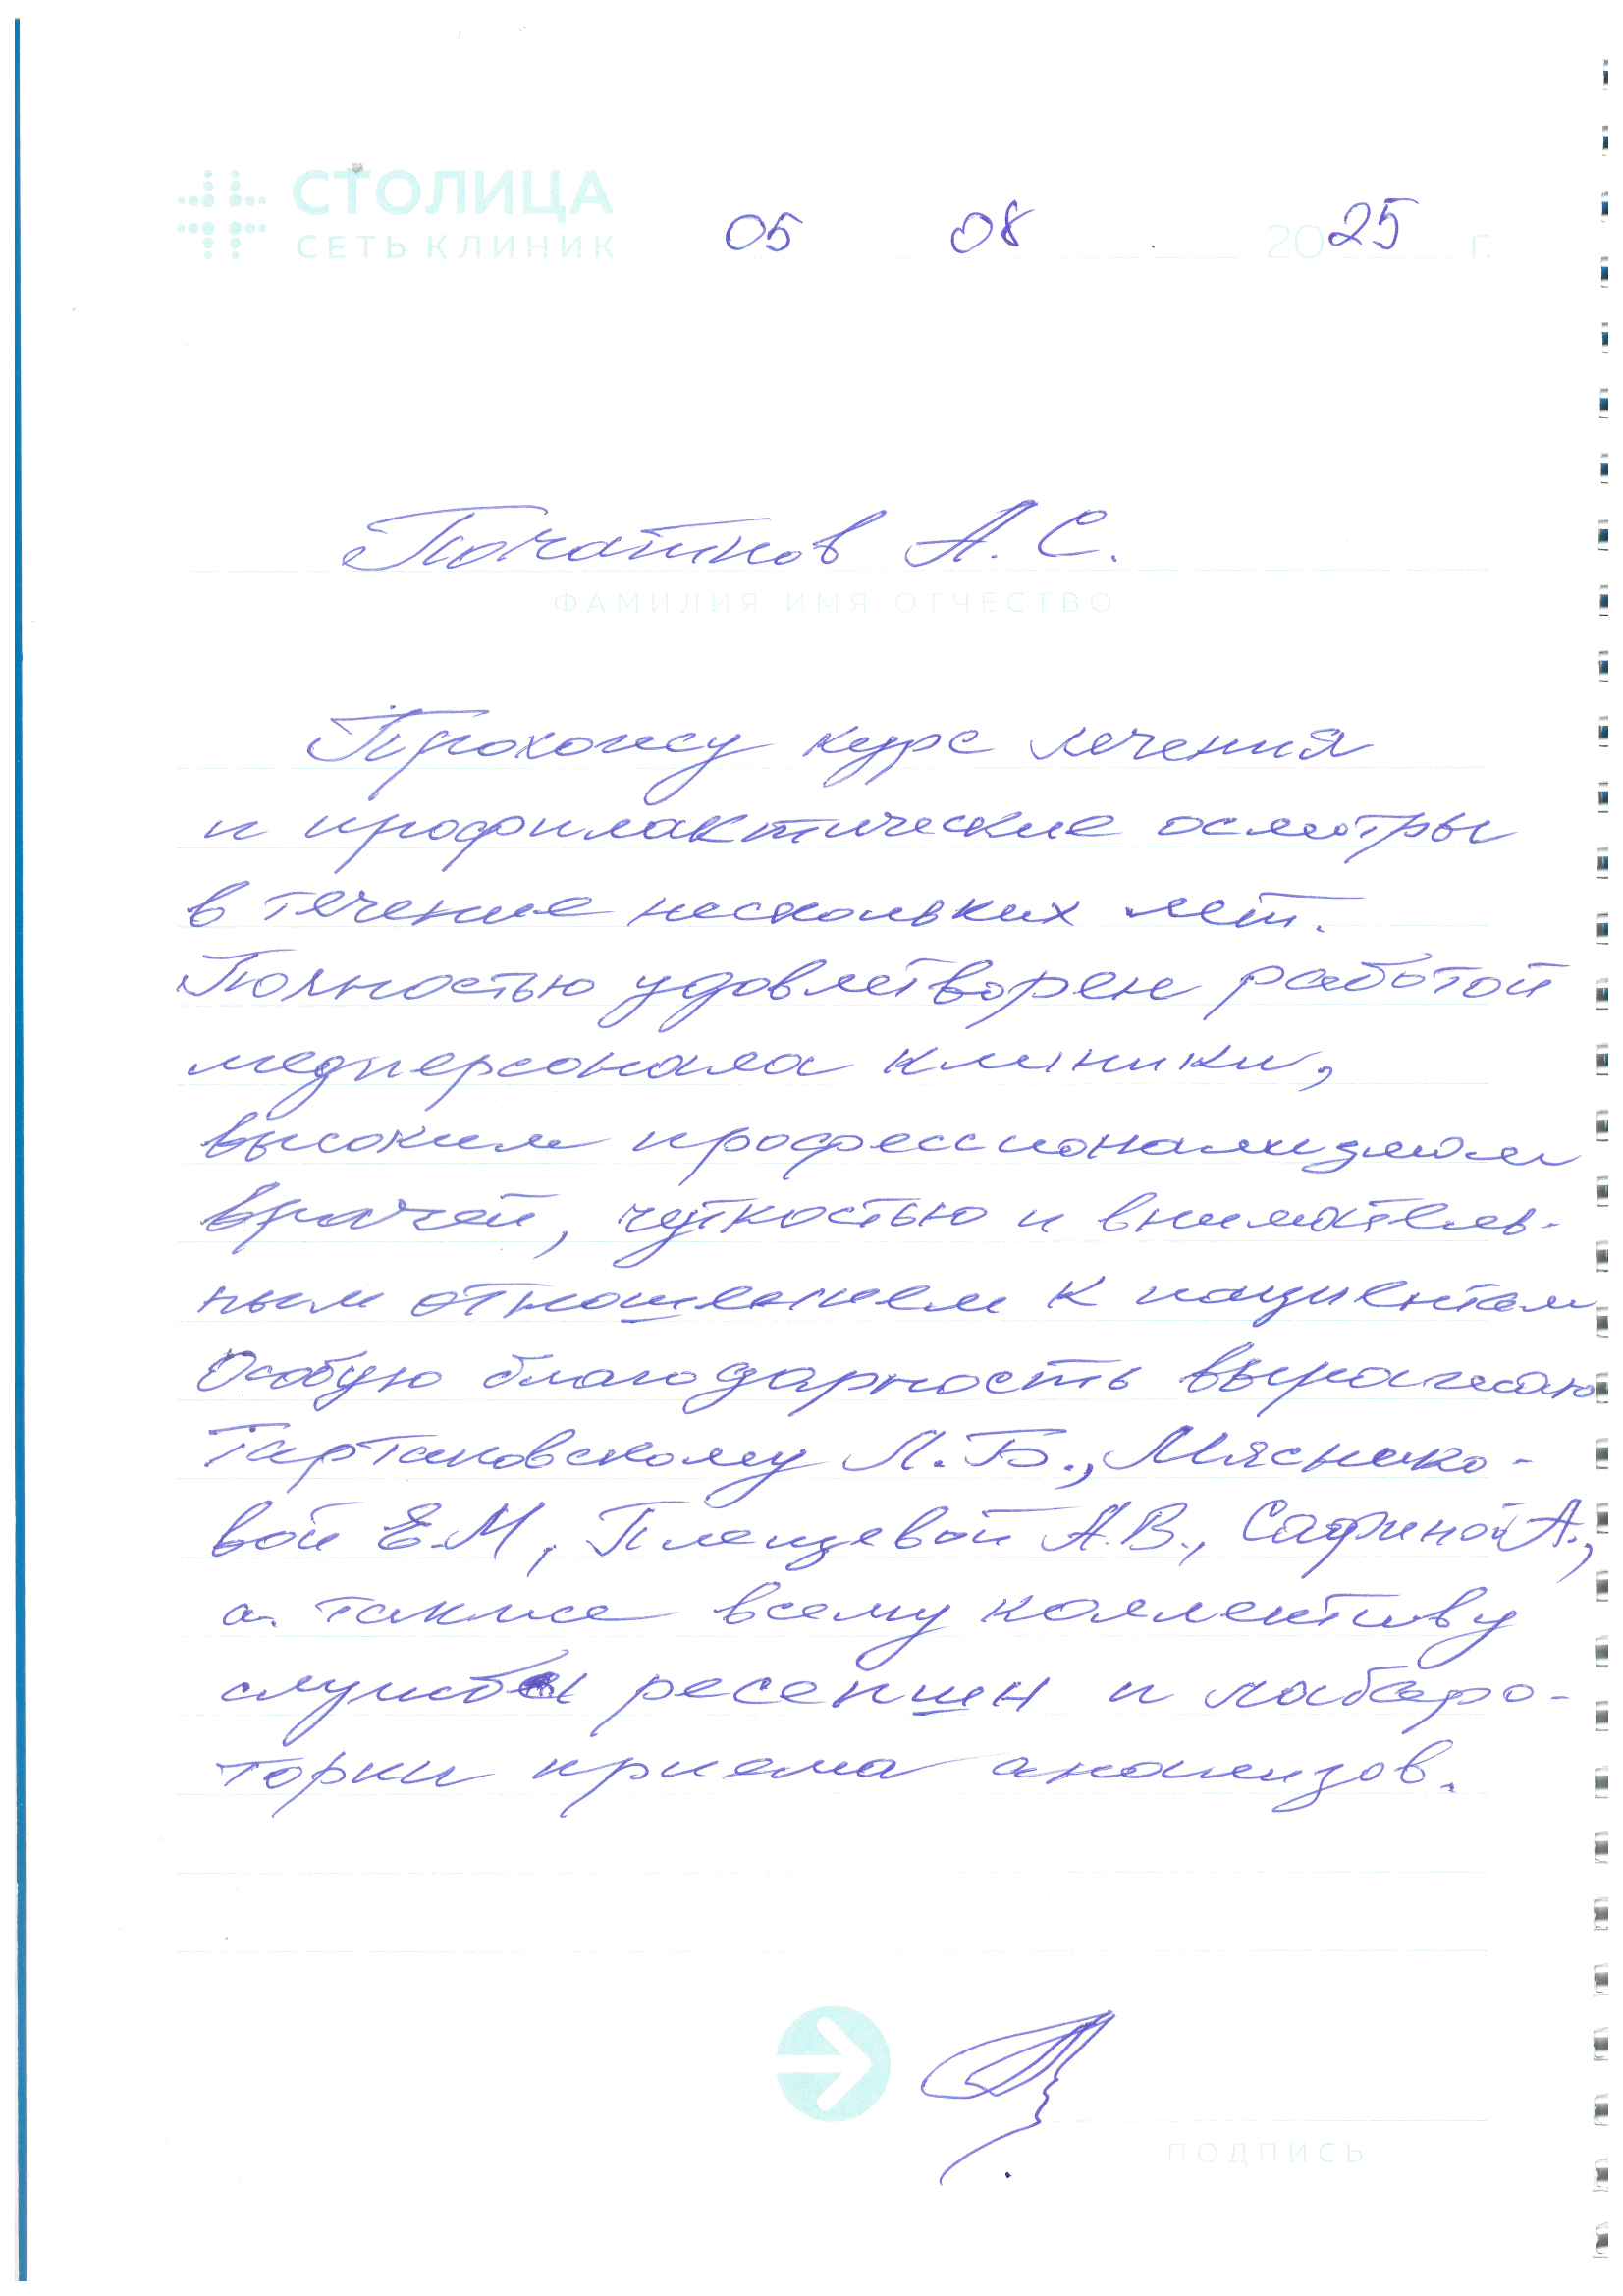 СТОЛИЦА
СЕТЬ КЛИНИК
05 08 2025 г.
Початков А. С.
ФАМИЛИЯ ИМЯ ОТЧЕСТВО
Прохожу курс лечения
и профилактические осмотры
в течение нескольких лет.
Полностью удовлетворен работой
медперсонала клиники,
высоким профессионализмом
врачей, чуткостью и вниматель-
ным отношением к пациентам
Особую благодарность выражаю
Тартаковскому Л. Б., Мяснико-
вой Е.М, Плещевой А.В., Сафиной А.,
а также всему коллективу
службы ресепшн и лабора-
тории приема анализов.
ПОДПИСЬ